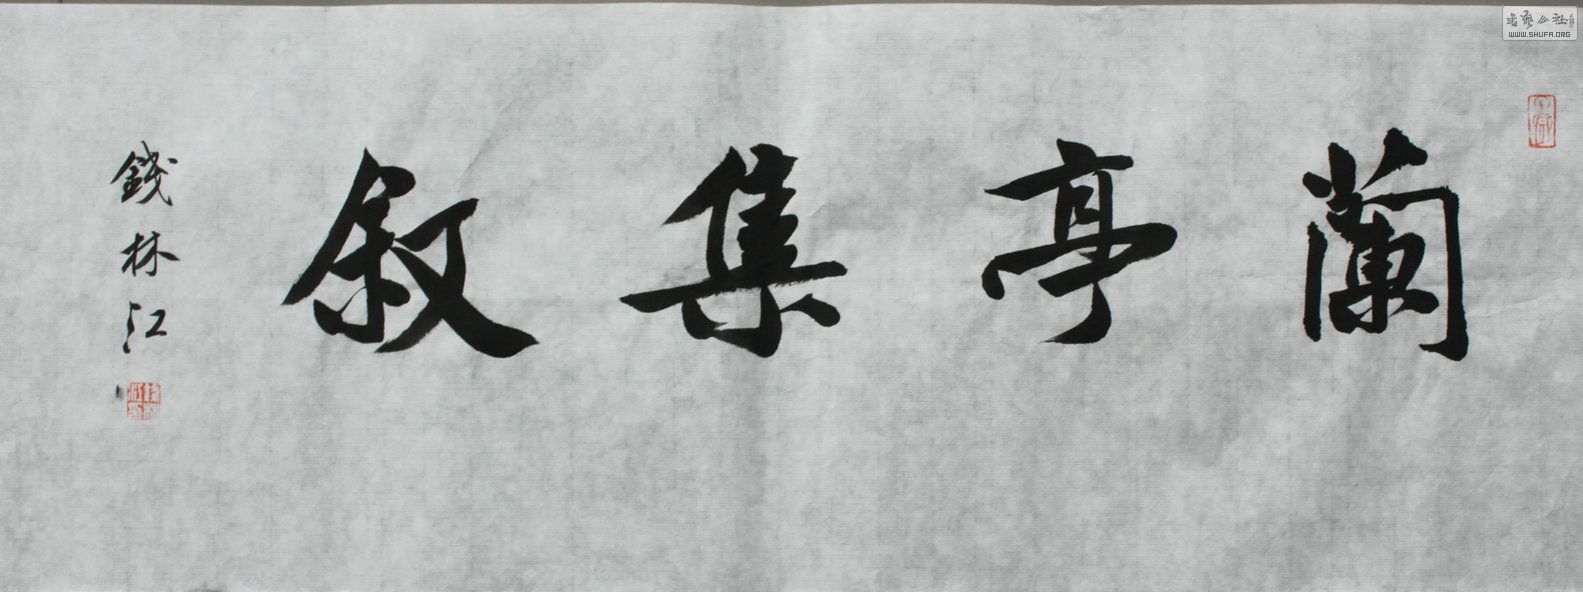 蘭亭集敘
錢林江
書藝公社
WWW.SHUFA.ORG